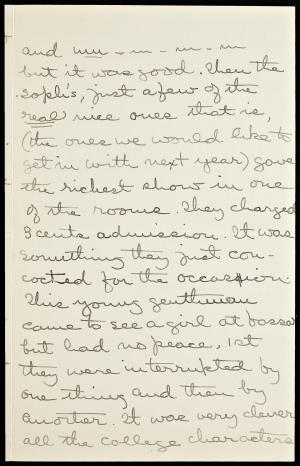 and um - m - m - m
but it was good. Then the
soph's, just a few of the
real nice ones that is,
(the ones we would like to
get in with next year) gave
the richest show in one
of the rooms. They charged
3 cents admission. It was
something they just con-
cocted for the occassion.
This young gentleman
came to see a girl at Vassar
but had no peace, 1st
they were interrupted by
one thing and then by
another. It was very clever
all the college characters